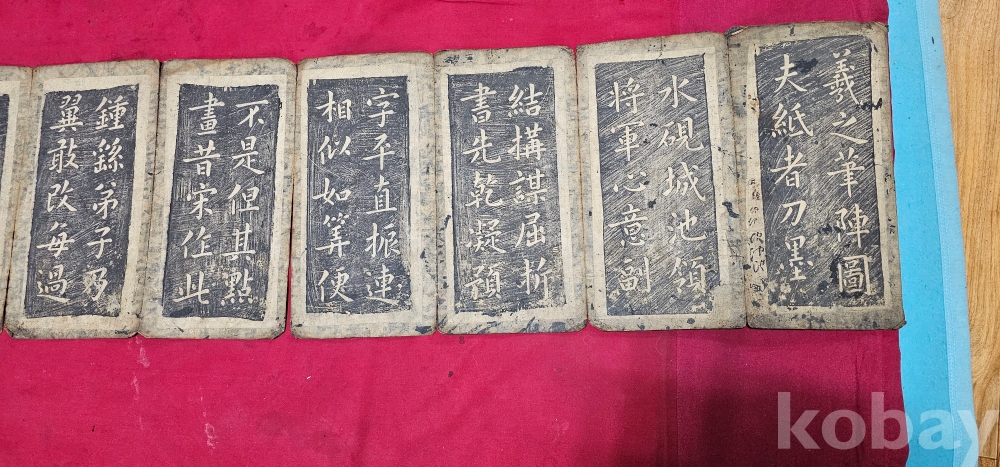 羲之筆陣圖
夫紙者刀墨
水硯城池領
将軍心意副
結搆謀屈折
書先乾凝預
字平直振連
相似如筭便
不是但其點
畫昔宋作此
鍾繇弟子乃
翼敢改每過
kobay